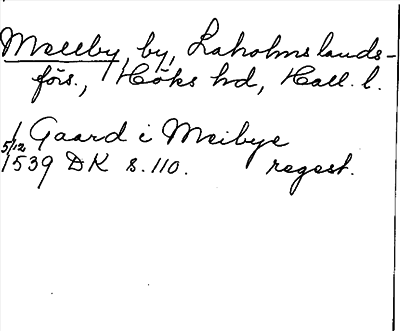 Mellby, by, Laholms lands-
förs., Höks hd, Hall. l.
1 Gaard i Meibye
5/12 1539 DK s. 110. regest.